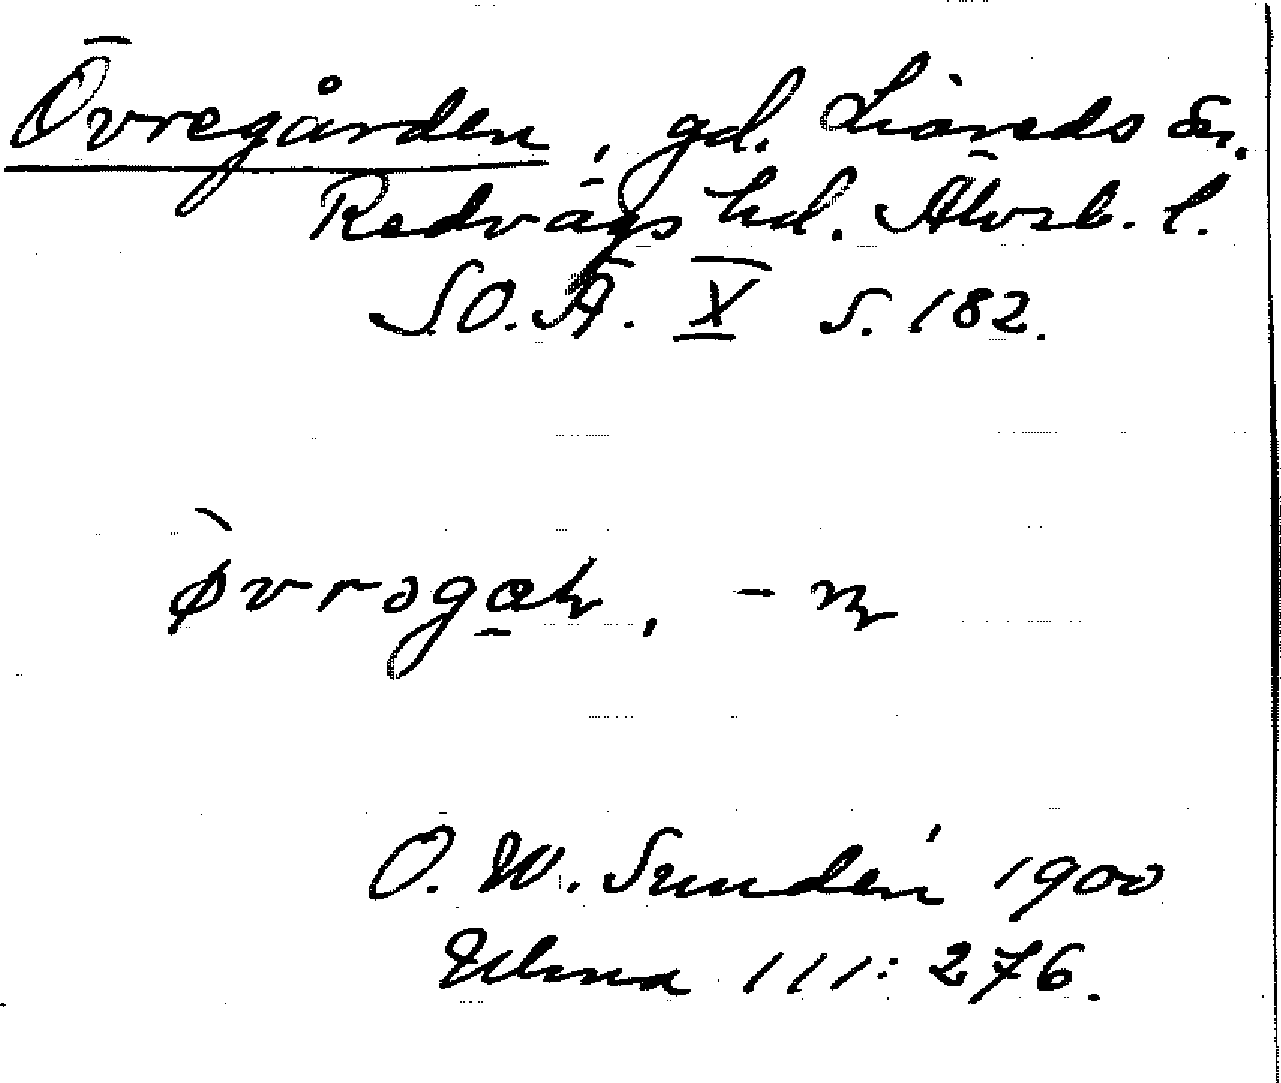 Övregården, gd. Liareds sn.
Redvägs hd. Älvsb. l.
S.O.Ä. X s. 182.
O. W. Sundén 1900
Ulma 111:276.